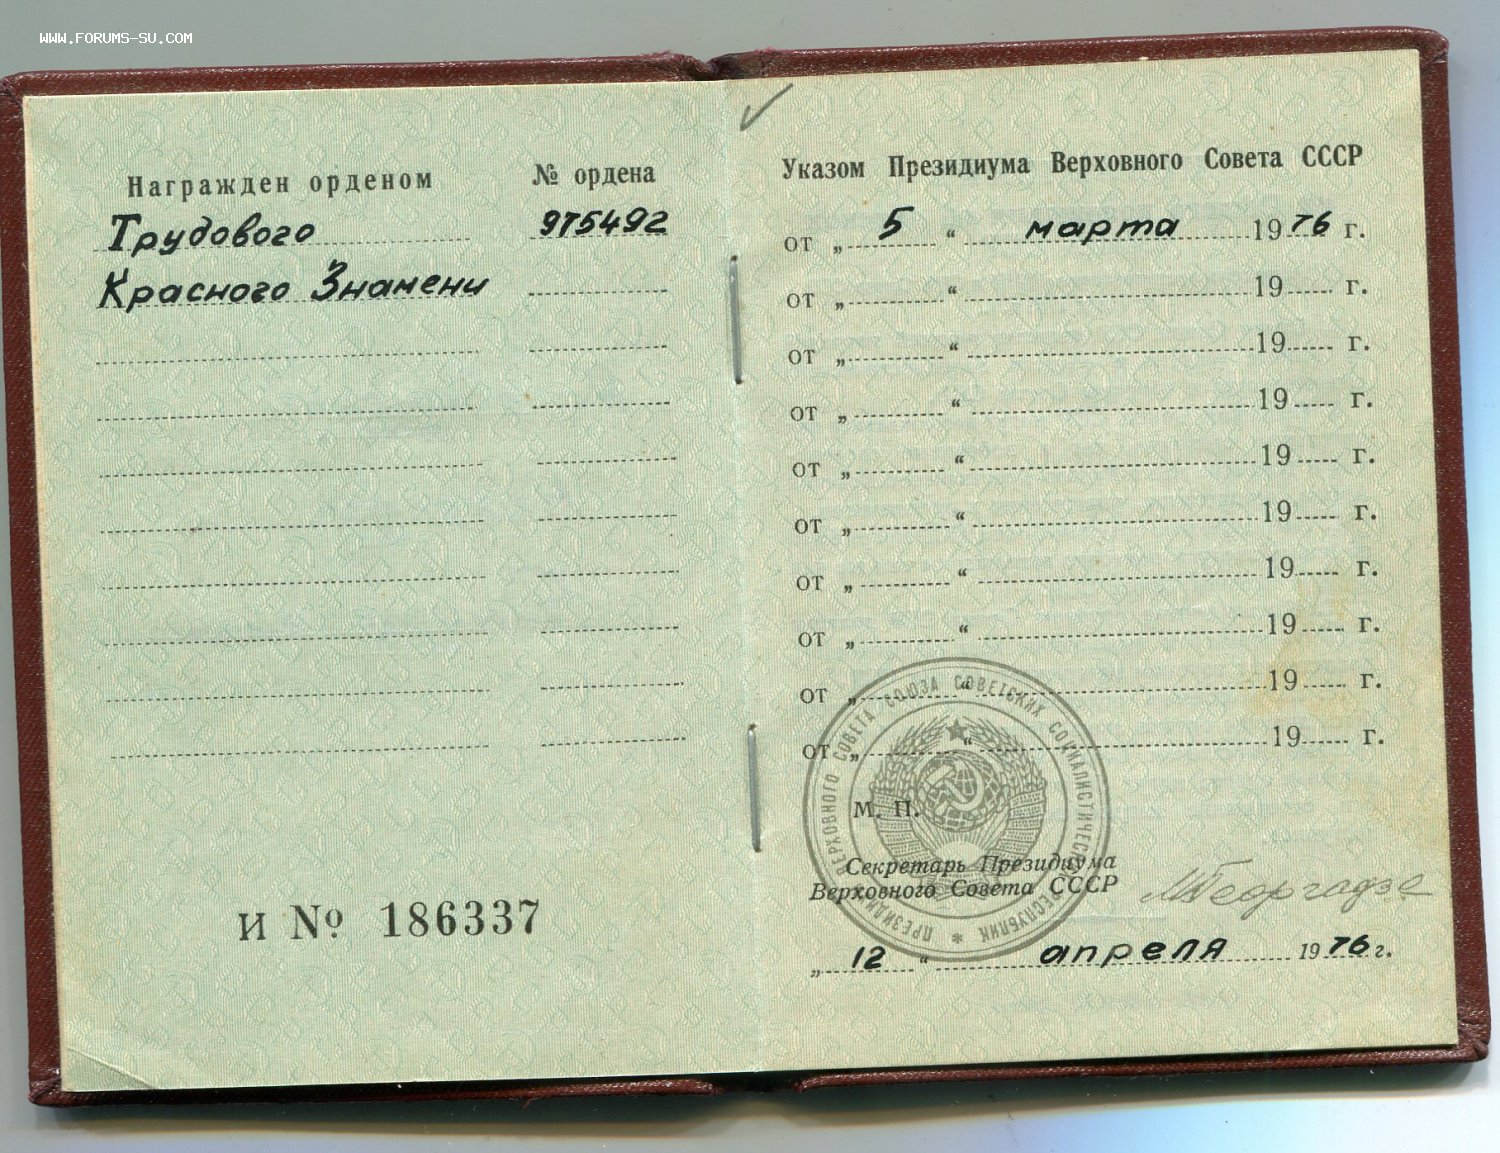 WWW.FORUMS-SU.COM
Награжден орденом № ордена
Трудового 975492
Красного Знамени
И № 186337
Указом Президиума Верховного Совета СССР
от „ 5 “ марта 1976 г.
от „ “ 19 г.
от „ “ 19 г.
от „ “ 19 г.
от „ “ 19 г.
от „ “ 19 г.
от „ “ 19 г.
от „ “ 19 г.
от „ “ 19 г.
от „ “ 19 г.
ПРЕЗИДИУМ ВЕРХОВНОГО СОВЕТА СОЮЗА СОВЕТСКИХ СОЦИАЛИСТИЧЕСКИХ РЕСПУБЛИК
М. П.
Секретарь Президиума
Верховного Совета СССР МГеоргадзе
„ 12 “ апреля 1976 г.